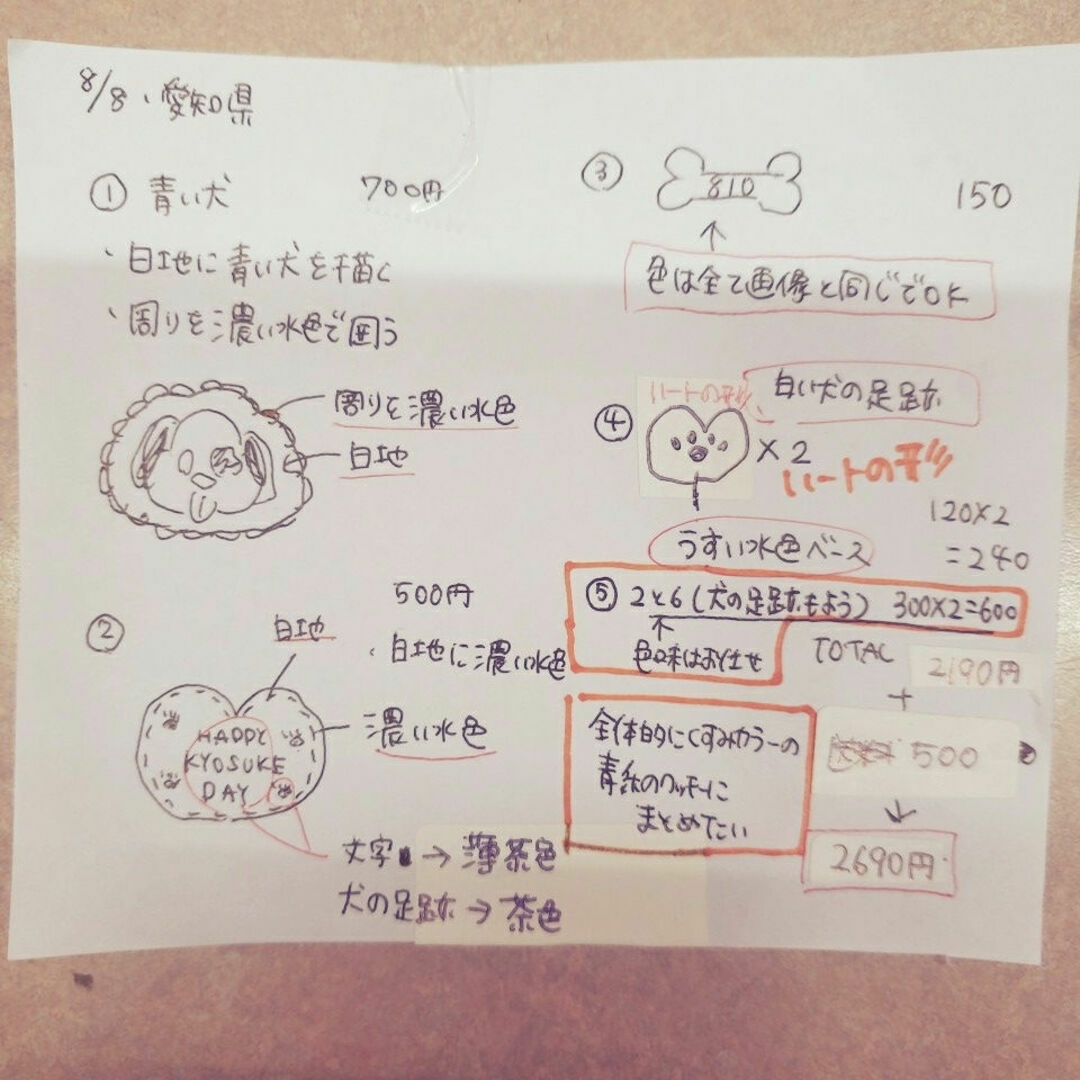 8/8、愛知県
① 青い犬 700円
・白地に青い犬を描く
・周りを濃い水色で囲う
周りを濃い水色
白地
② 500円
白地
・白地に濃い水色
濃い水色
HAPPY
KYOSUKE
DAY
文字 → 薄茶色
犬の足跡 → 茶色
③ 810 150
↑
色は全て画像と同じでOK
ハートの形
白い犬の足跡
④ ×2
ハートの形
うすい水色ベース
120×2
=240
⑤ 2と6(犬の足跡もよう) 300×2=600
↑
色味はお任せ
TOTAL 2190円
+
500
↓
2690円
全体的にくすみカラーの
青系のクッキーに
まとめたい